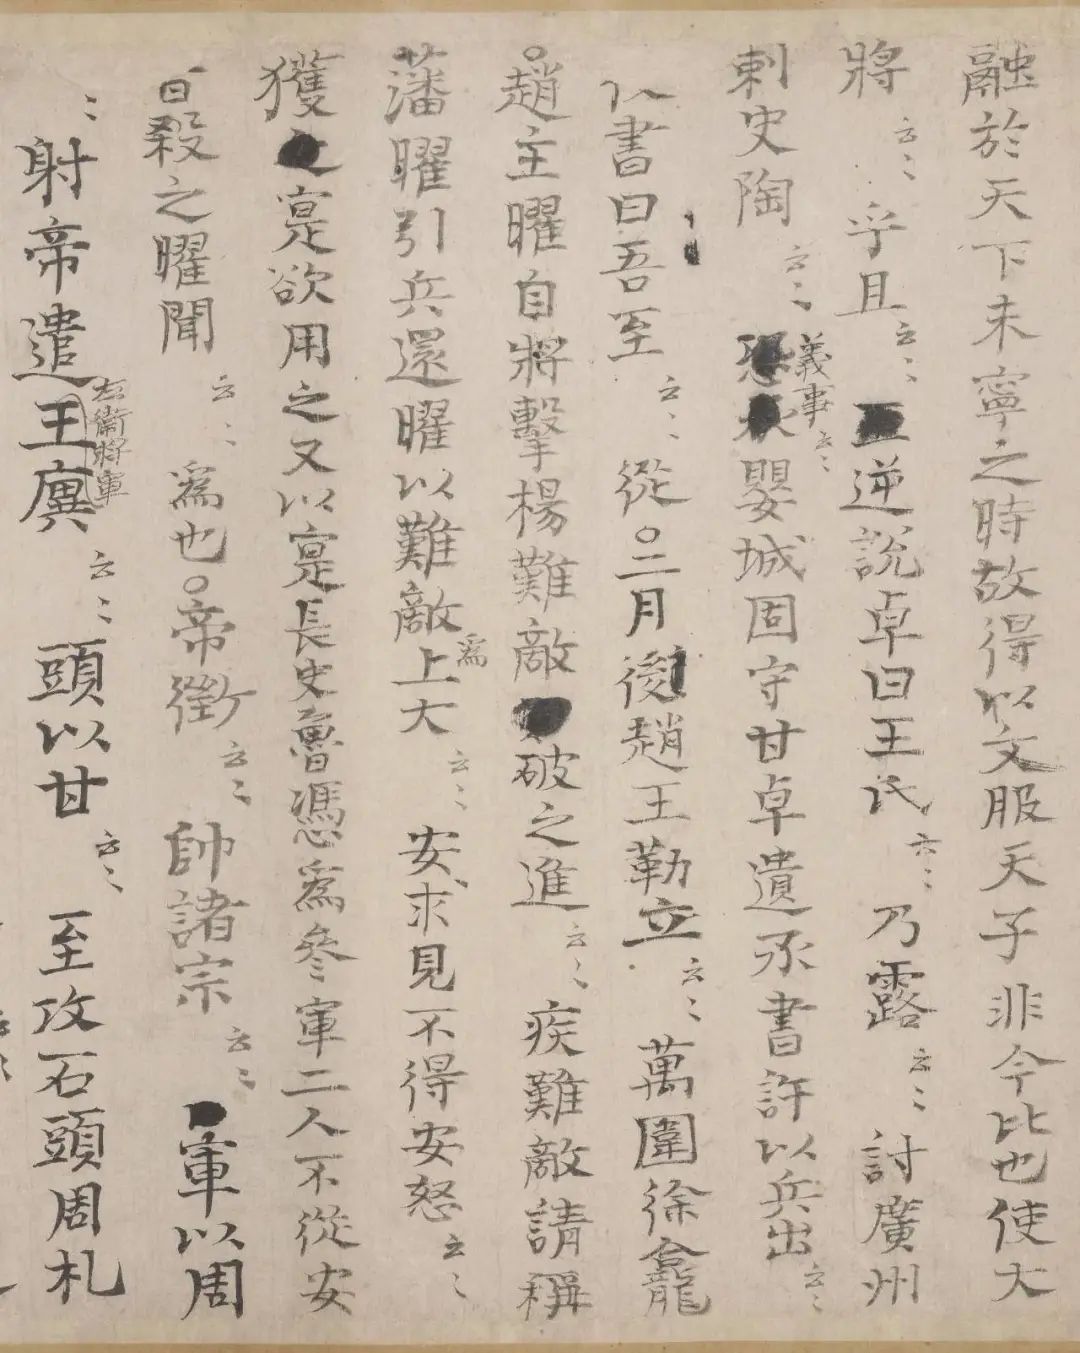 融於天下未寧之時故得以文服天子非今比也使大
將云〻乎且云〻逆說卓曰王氏云〻乃露云〻討廣州
刺史陶云〻義事云〻嬰城固守甘卓遺承書許以兵出云〻
以書曰吾至云〻從〇二月後趙王勒立云〻萬圍徐龕
〇趙主曜自將擊楊難敵破之進云〻疾難敵請稱
藩曜引兵還曜以難敵為上大云〻安求見不得安怒云〻
獲寔欲用之又以寔長史魯馮為參軍二人不從安
曰殺之曜聞云〻為也〇帝徵云〻帥諸宗云〻軍以周
〻射帝遣左衛將軍王廙云〻頭以甘云〻至攻石頭周札